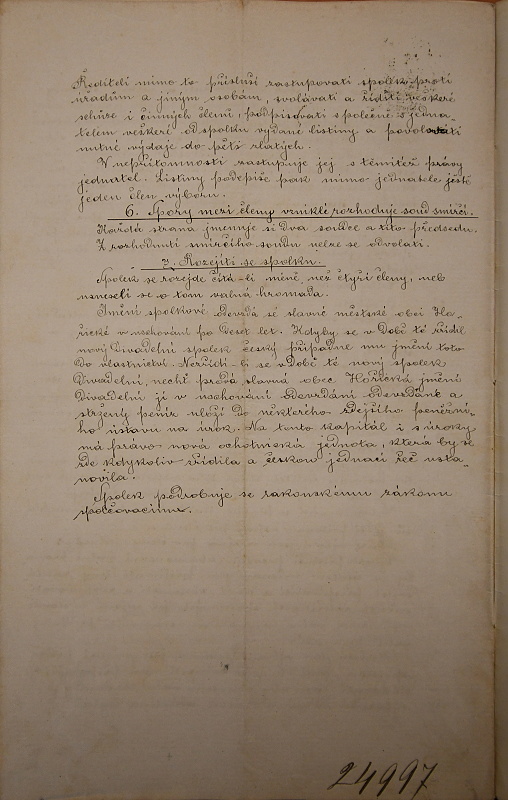 Řediteli mimo to přísluší zastupovati spolek proti
úřadům a jiným osobám, svolávati a říditi veškeré
schůze i činných členů; podpisovati společně s jedna-
telem veškeré od spolku vydané listiny a povolovati
nutné výdaje do pěti zlatých.
V nepřítomnosti zastupuje jej s těmitéž právy
jednatel. Listiny podepíše pak mimo jednatele ještě
jeden člen výboru.
6. Spory mezi členy vzniklé rozhoduje soud smírčí.
Každá strana jmenuje si dva soudce a tito předsedu.
Z rozhodnutí smírčího soudu nelze se odvolati.
7. Rozejití se spolku.
Spolek se rozejde čítá-li méně než čtyři členy, neb
usnesla se o tom valná hromada.
Jmění spolkové odevzdá se slavné městské obci Ho-
řické v uschování po deset let. Kdyby se v době té zřídil
nový divadelní spolek český připadne mu jmění toto
do vlastnictví. Nezřídí-li se v době té nový spolek
divadelní, nechť prodá slavná obec Hořická jmění
divadelní jí v uschování odevzdané a
stržený peníz uloží do některého zdejšího peněžní-
ho ústavu na úrok. Na tento kapitál i s úroky
má právo nová ochotnická jednota, která by se
zde kdykoliv zřídila a českou jednací řeč usta-
novila.
Spolek podrobuje se rakouskému zákonu
spolčovacímu.
24997